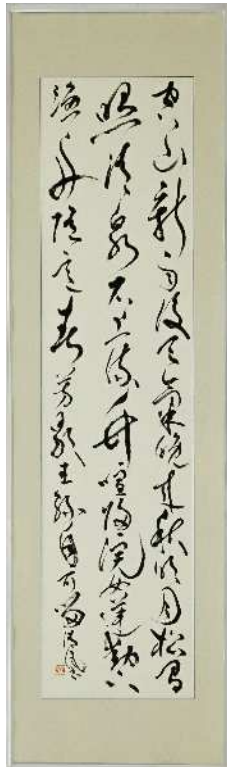 空山新雨後天氣晚来秋明月松間
照清泉石上流竹喧歸浣女蓮動下
漁舟随意春芳歇王孫自可留